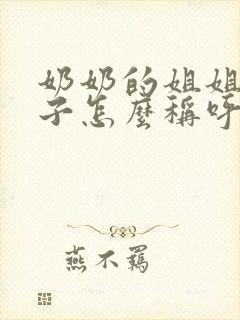 奶奶的姐姐
子怎麼稱呼
燕不羈